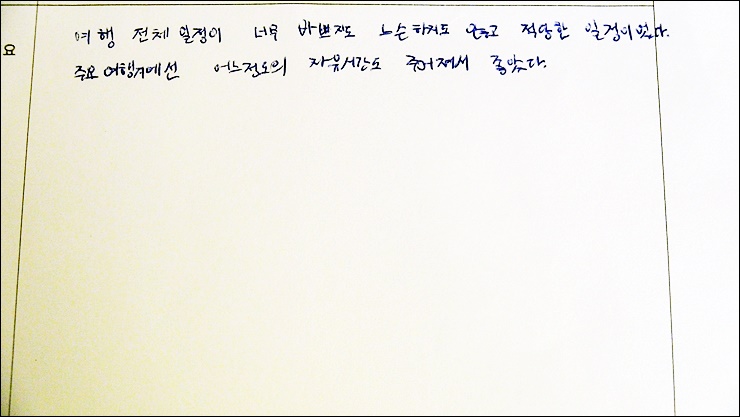 여행 전체 일정이 너무 바쁘지도 느슨하지도 않고 적당한 일정이었다.
요
주요 여행지에선 어느정도의 자유시간도 주어져서 좋았다.